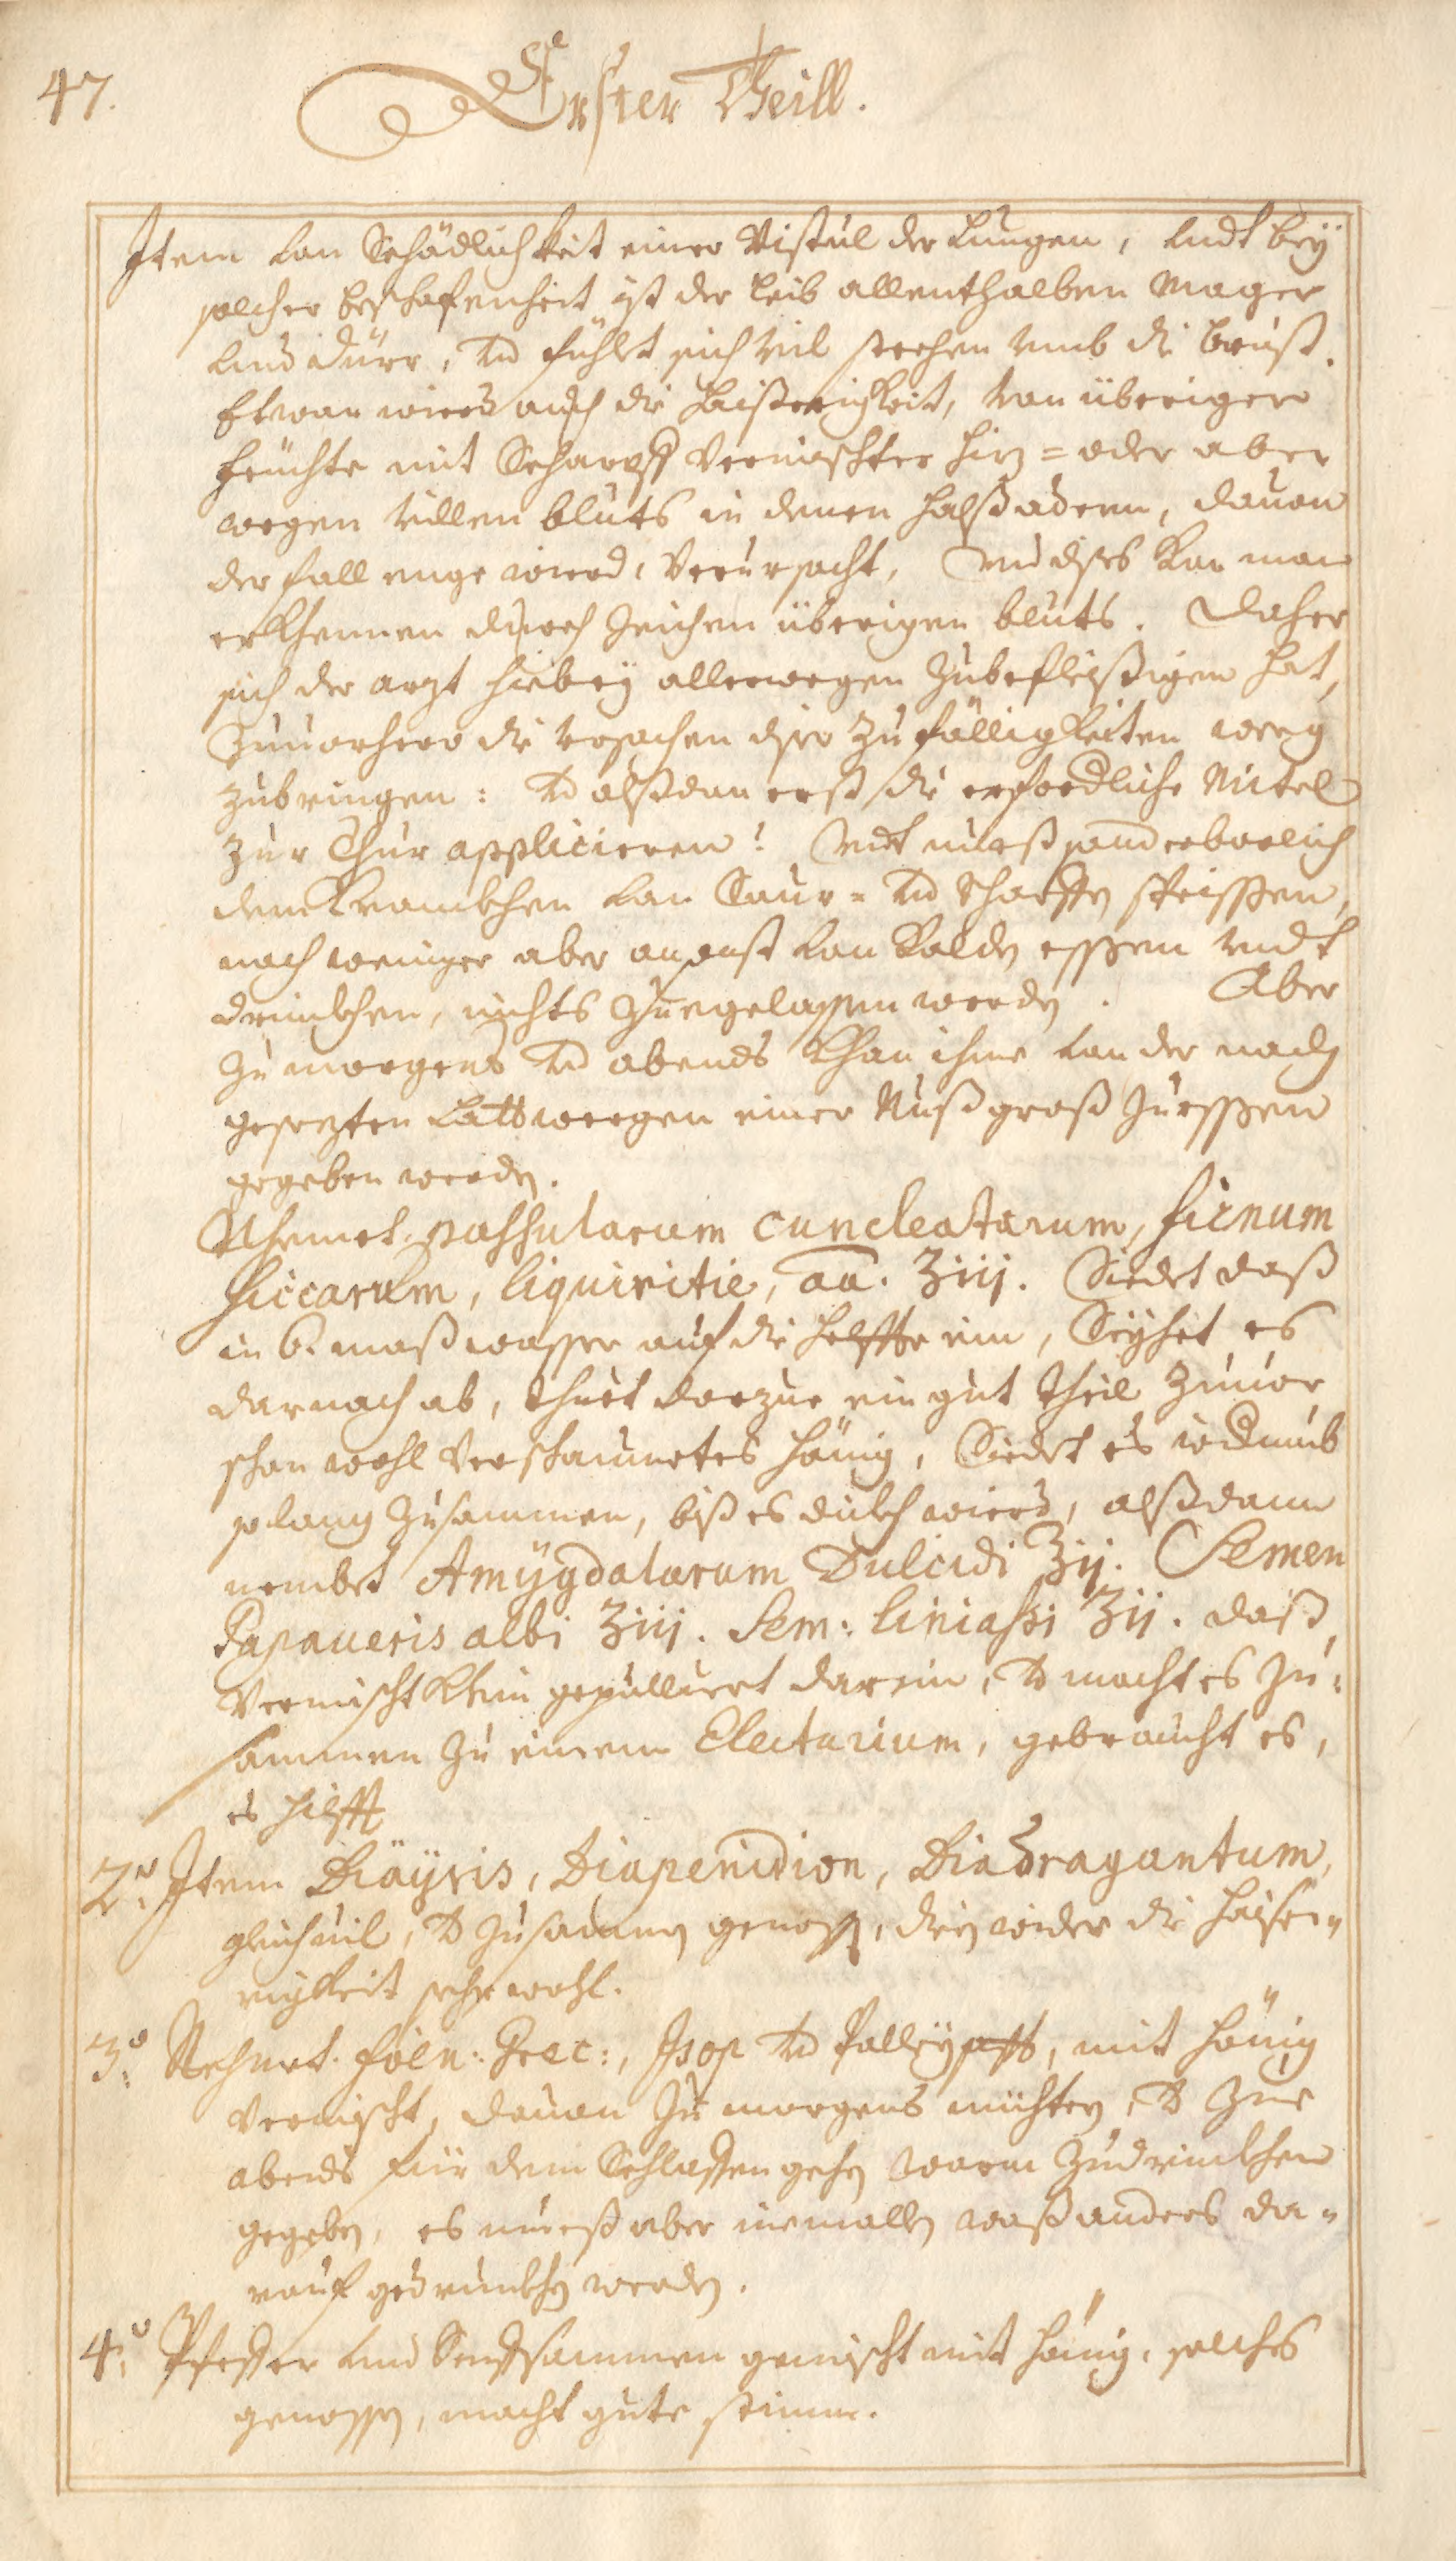 47.
Erster Theill.
Item von Schädlichkeit einer Vistul der Lungen, vndt beÿ
solcher beschafenheit ist der leib allenthalben mager
vnd dürr, vnd fühlt sich vil stechen vmb die brust.
Etwan wird auch die haißerigkeit, von überiger
feüchte mit Scharpff vermischter hiz = oder aber
wegen villen bluts in denen halßadern, dauon
der fall enge wird, verursacht, vnd dises kan man
erkhennen durch zeichen überigen bluts. Daher
sich der arzt hiebeÿ allerwegen zubefleißigen hat,
zuuorhero die vrsachen diser zufälligkeiten weeg
zubringen: vnd alßdan erst die erfordliche Mitel
zur Chur applicieren! vndt mueß sonderbarlich
dem krankhen von Saur = vnd scharffen speissen,
noch weniger aber ansonst von kalden essen vndt
drinkhen, nichts zuegelassen werden. Aber
zu morgens vnd abends khan ihme von der nach
gesezten Lattwergen einer Nuß groß zu essen
gegeben werden.
Nhemet. passularum enucleatarum, ficnum
siccarum, liquiritie, aa. ʒiij. Siedet daß
in 6. maß wasser auf die helffte ein, Seÿhet es
darnach ab, thuet darzue ein gut theil zuuor
schon wohl verschaumetes hönig, Siedet es widerumb
so lang zusammen, biß es dickh wird, alßdann
nembet Amÿgdalarum Dulcidi ʒij. Semen
Papaueris albi ʒiij. Sem: liniassi ʒij. daß
vermischt khlein gepulluert darein, vnd macht es zu=
sammen zu einem Electarium, gebraucht es,
es hilfft
2.o Item Diäÿris, Diapenidion, Diadragantum,
gleichuil, vnd zusammen genossen, dien wider die haise=
rigkeit sehr wohl.
3.o Nehmet. foen: Grec:, Isop vnd Polleÿsafft, mit hönig
vermischt, dauon zu morgens nüchtern, vnd zue
abends für dem Schlaffen gehen warm zudrinkhen
gegeben, es mueß aber niemallen waß anders da=
rauf gedrunkhen werden.
4.o Pfeffer vnd Senffsammen gemischt mit hönig, solches
genossen, macht gute stimme.